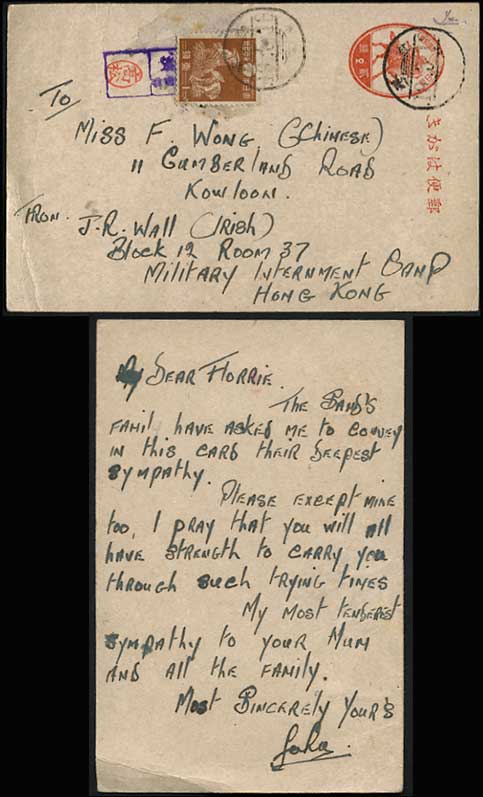 To
Miss F. Wong, (Chinese)
11 Cumberland Road
Kowloon.
From.
J.R. Wall (Irish)
Block 12 Room 37
Military Internment Camp
Hong Kong
きがは便郵
My Dear Florrie.
The Sand's
Famil have asked me to convey
in this card their deepest
sympathy.
Please except mine
too, I pray that you will all
have strength to carry you
through such trying times
My most tenderest
sympathy to your Mum
and all the family.
Most Sincerely Your's
John.